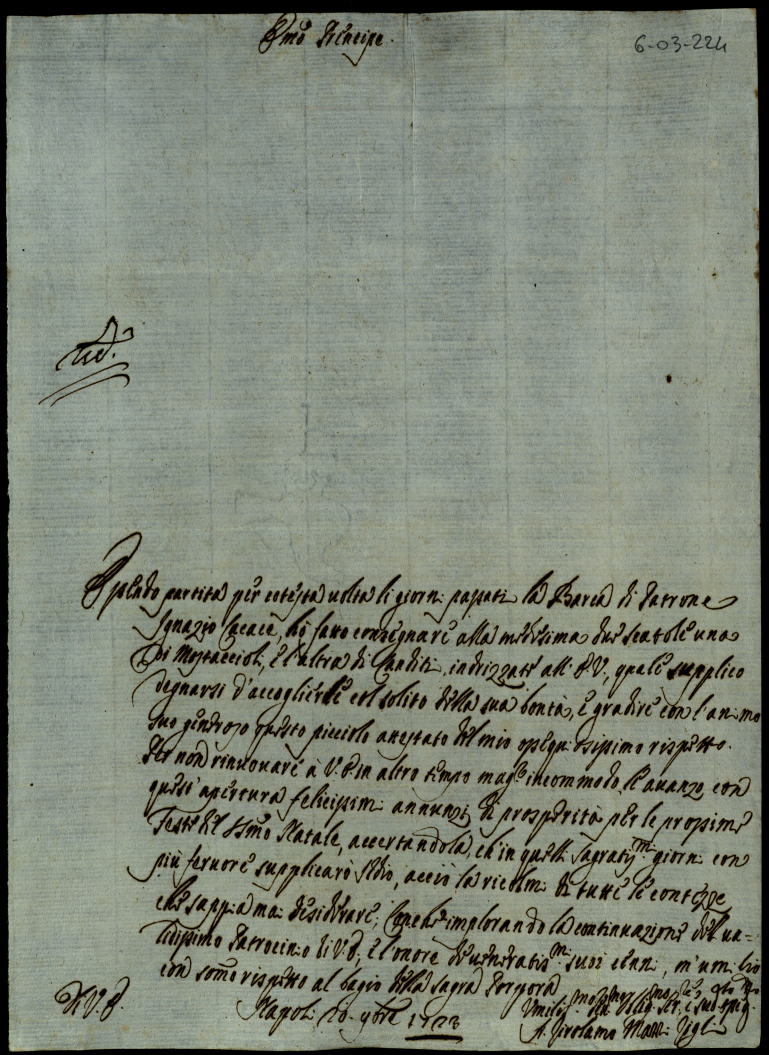 Emo Principe.
6-03-224
Essendo partita per cotesta volta li giorni passati la Barca di Patrone
Ignazio Cacace, hò fatto consegnare alla medesima due scatole una
di Mostaccioli, e l'altra di Canditi, indrizzate all' E.V., quale supplico
degnarsi d'accoglierle col solito della sua bontà, e gradire con l'animo
suo generoso questo picciolo attestato del mio ossequiosissimo rispetto.
Per non rinuovare à V.E. in altro tempo magr incommodo, l'avanzo con
quest'apertura felicissimi annunzj di prosperità per le prossime
Feste del SSmo Natale, accertandola, ch'in quelli sagratissmi giorni con
più fervore supplicarò Iddio, acciò la ricolmi di tutte le contezze
che sappia mai desiderare; Con che implorando la continuazione del va=
lidissimo Patrocinio di V.E., e l'onore de veneratissmi suoi cenni, m'umilio
con somo rispetto al bagio della Sagra Porpora
D V. E.
Napoli 20 9bre 1723
Girolamo